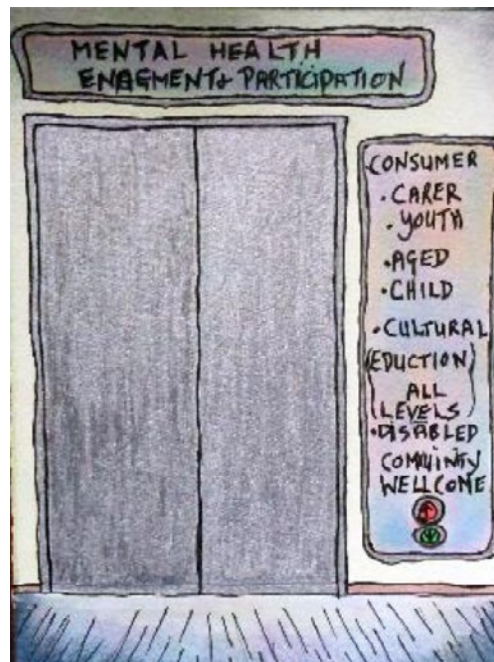 MENTAL HEALTH
ENAGMENT & PARTICIPATION
CONSUMER
• CARER
• YOUTH
• AGED
• CHILD
• CULTURAL
(EDUCTION)
ALL
LEVELS
• DISABLED
COMMUINTY
WELLCOME